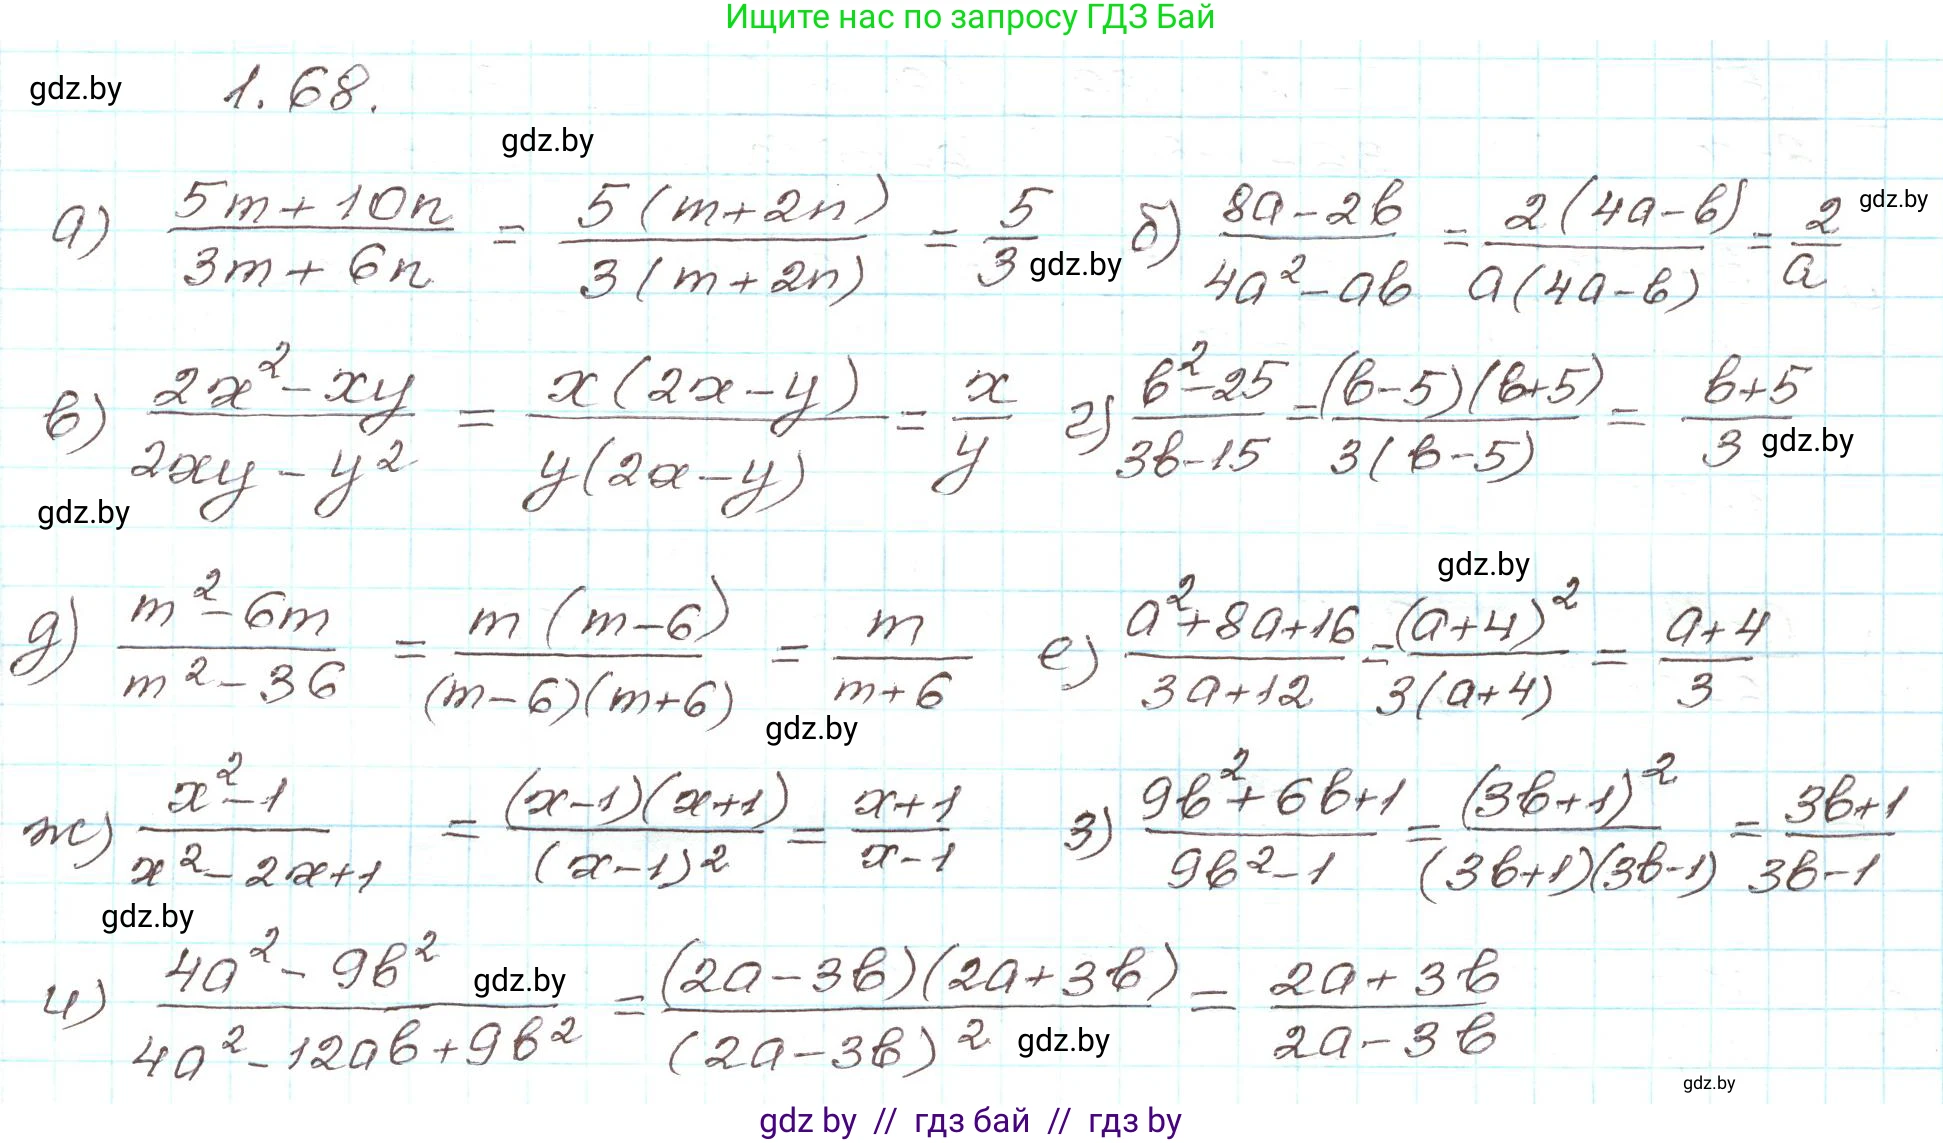 Ищите нас по запросу ГДЗ Бай
gdz.by 1.68.
gdz.by
а) (5m+10n)/(3m+6n) = 5(m+2n)/3(m+2n) = 5/3 gdz.by б) (8a-2b)/(4a²-ab) = 2(4a-b)/a(4a-b) = 2/a gdz.by
в) (2x²-xy)/(2xy-y²) = x(2x-y)/y(2x-y) = x/y г) (b²-25)/(3b-15) = (b-5)(b+5)/3(b-5) = (b+5)/3 gdz.by
gdz.by
gdz.by
д) (m²-6m)/(m²-36) = m(m-6)/(m-6)(m+6) = m/(m+6) е) (a²+8a+16)/(3a+12) = (a+4)²/3(a+4) = (a+4)/3
gdz.by
ж) (x²-1)/(x²-2x+1) = (x-1)(x+1)/(x-1)² = (x+1)/(x-1) з) (9b²+6b+1)/(9b²-1) = (3b+1)²/(3b+1)(3b-1) = (3b+1)/(3b-1)
gdz.by
и) (4a²-9b²)/(4a²-12ab+9b²) gdz.by = (2a-3b)(2a+3b)/(2a-3b)² gdz.by = (2a+3b)/(2a-3b)
gdz.by
gdz by // гдз бай // гдз by